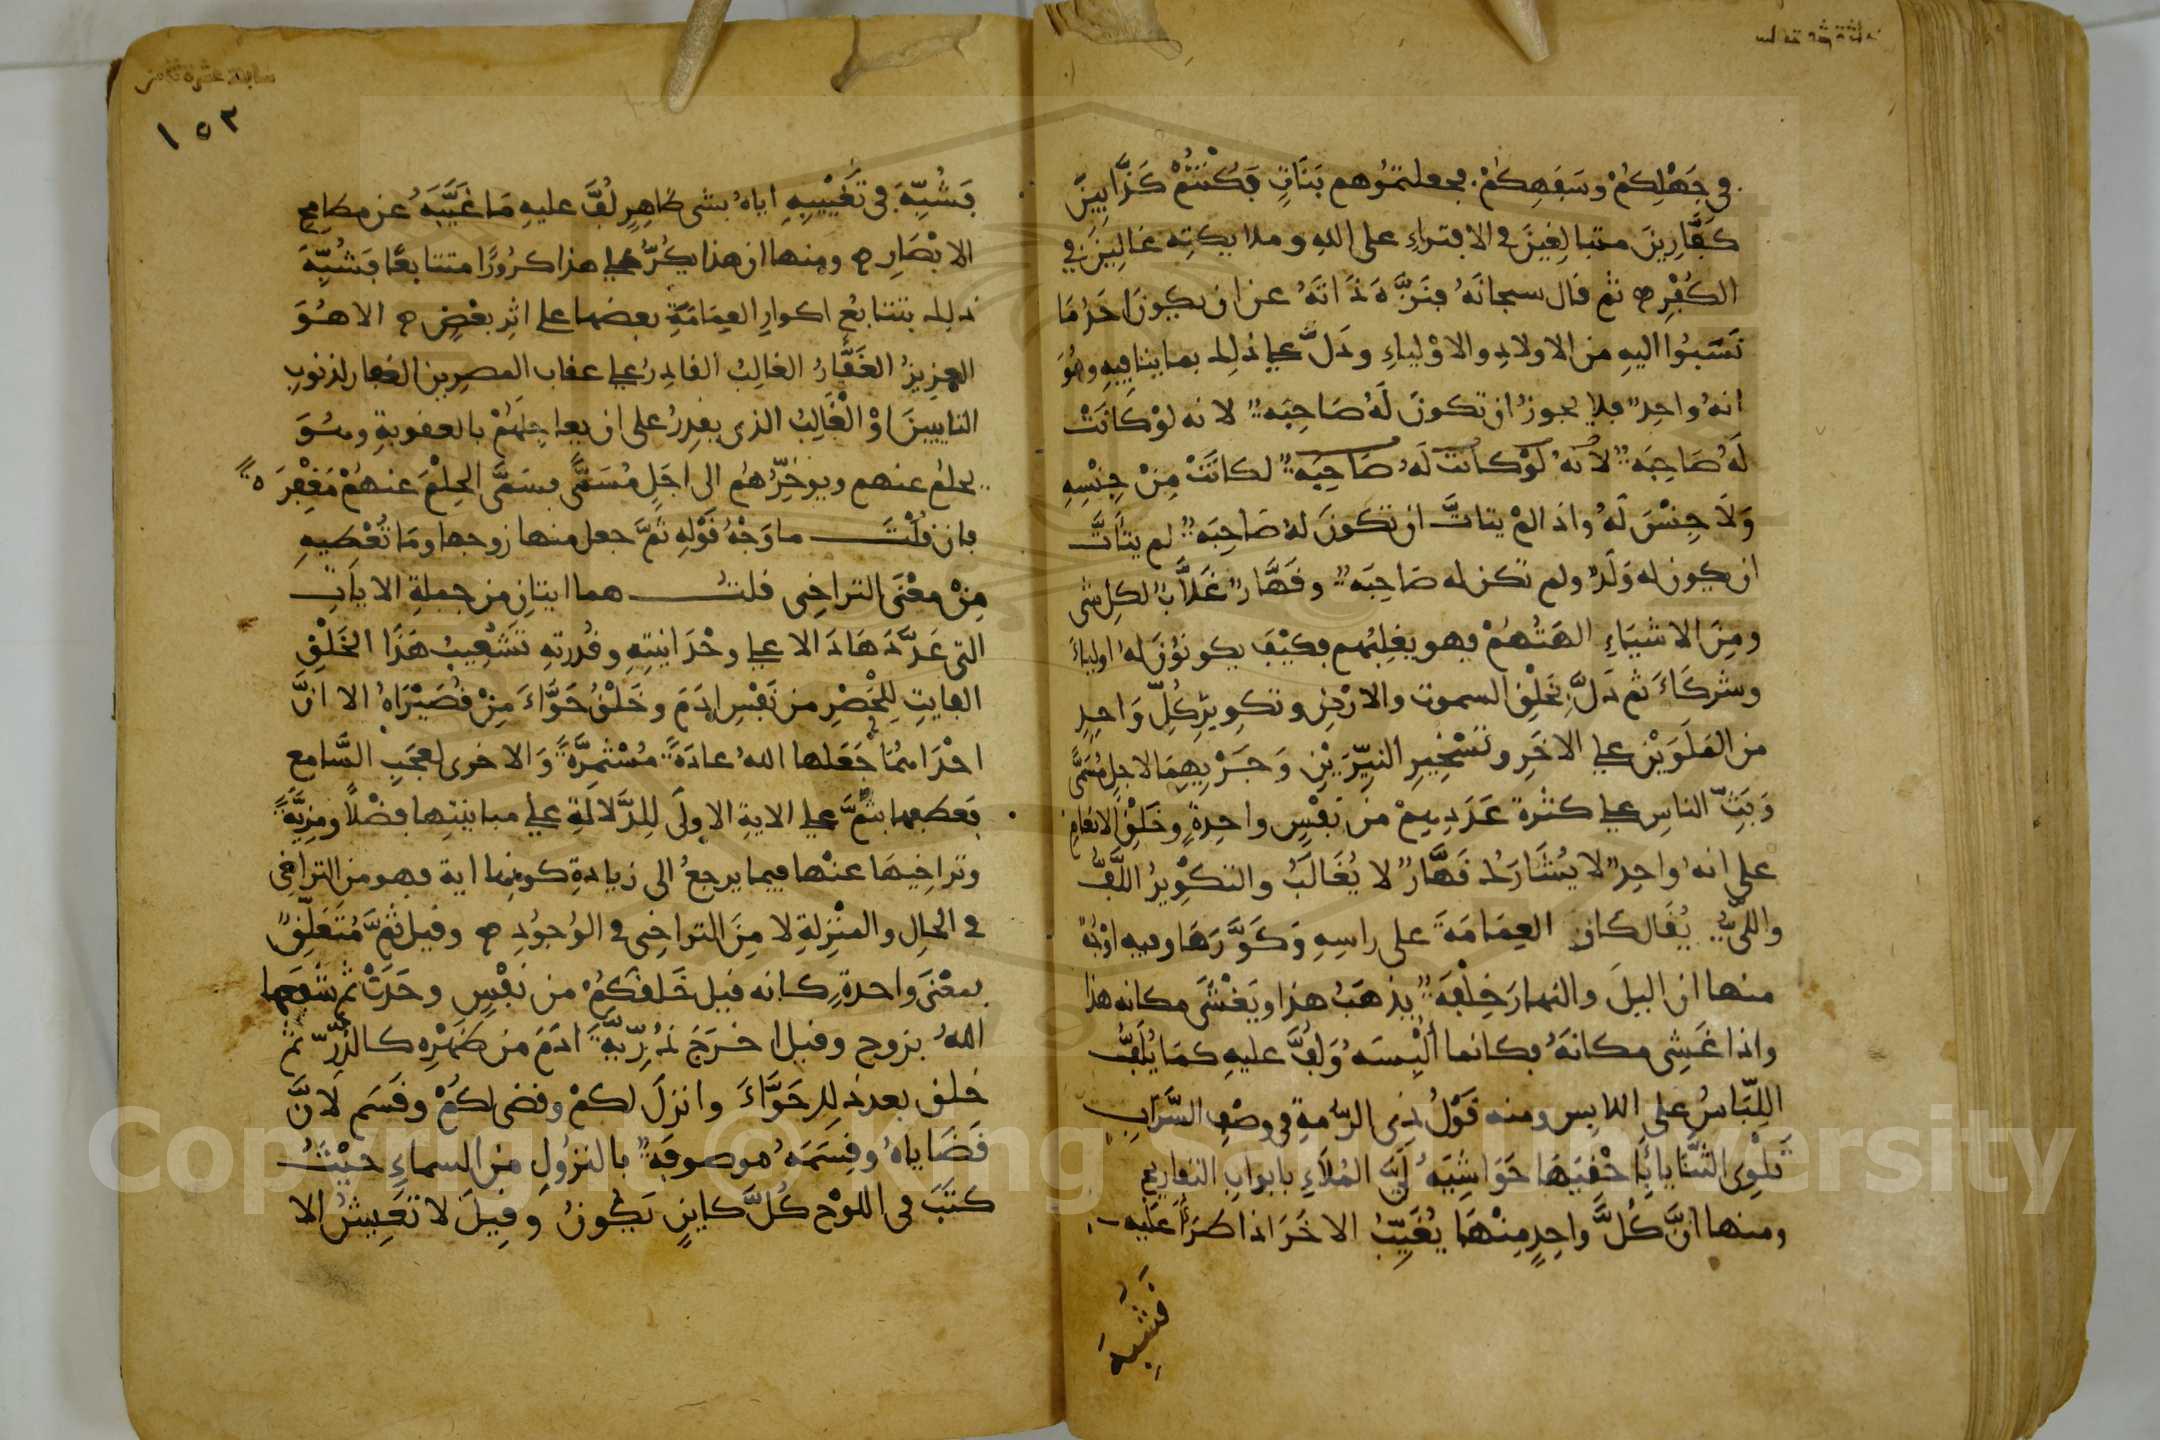 في جَهْلِكُمْ وسَفَهِكُمْ. فجعلتموهم بَنَاتٍ فكُنْتُمْ كَذَّابِينَ
كَفَّارِينَ متبالِغينَ في الافتراءِ على اللهِ وملايكتِهِ غالِينَ في
الكُفْرِ ثم قال سبحانَهُ فنَزَّهَ ذَاتَهُ عن ان يكونَ احَدٌ مَا
نَسَبُوا اليهِ من الاولادِ والاوْلياءِ ودَلَّ على ذلك بما ينافيهِ وهُوَ
انهُ واحِدٌ فلا يجوزُ ان تكونَ لَهُ صَاحِبَةٌ لانه لوْ كَانَتْ
لَهُ صَاحِبَةٌ لانه لَوْ كانت لَهُ صَاحِبَةٌ لكانَتْ مِنْ جِنْسِهِ
وَلَا جِنْسَ لَهُ واذا لمْ يتاتَّ ان تكونَ لهُ صَاحِبَةٌ لم يتاتَّ
ان يكون له وَلَدٌ ولم تكن له صَاحِبَةٌ وقَهَّارٌ غَلَّابٌ لكل شى
ومِنَ الاشيَاءِ الهَتُهُمْ فهو يغلِبُهم فكَيْفَ يكونُونَ لهُ اولياءَ
وشركَاءَ ثم دَلَّ بخلْقِ السموت والارْضِ وتكوِيرِ كُلِّ وَاحِدٍ
من المَلَوَيْنِ على الاخَرِ وتَسْخِيرِ النيِّرَيْنِ وَجَرْيِهِمَا لاجلٍ مُسَمًّى
وَبَثِّ الناسِ على كثْرة عَدَدِهِمْ من نفْسٍ واحِدةٍ وخَلْقِ الانعَامِ
على انهُ واحِدٌ لا يُشَارَكُ قَهَّارٌ لا يُغَالَبُ والتكْوِيرُ اللَّفُّ
واللَّىُّ يُقَال كَانَ العِمَامَةَ على راسِهِ وَكَوَّرَهَا وفيه اوْجُهٌ
منها ان اليلَ والنهارَ خِلْفَةٌ يذهَبُ هذا ويَغْشَى مكانه هذا
واذا غَشِى مكانَهُ فكانما أُلْبِسَهُ وَلُفَّ عليهِ كمَا يُلَفُّ
اللِّبَاسُ على اللابِسِ ومنه قَوْلُ ذِى الرُّمةِ في وصْفِ السَّرَابِ
تَلْوِى الثَّنَايا بِأَحْقيهَا حَوَاشِيَهُ لَيَّ المُلَاءِ بابوابِ التفاريجِ
ومنها انَّ كُلَّ واحِدٍ مِنْهُمَا يُغَيِّبُ الاخَرَ اذا طَرَأَ عَلَيه
فَشُبِّهَ
١٥٣
فَشُبِّهَ في تَغْيِيبِهِ اياهُ بشى ظَاهِرٍ لُفَّ عليهِ مَا غَيَّبَهُ عن مطامِحِ
الابْصَارِ ومنها ان هذا يَكُرُّ على هذا كرُورًا متتابعًا فَشُبِّهَ
ذلك بتتابُعِ اكوارِ العِمَامَةِ بعضها على اثِر بعْضٍ الا هُوَ
العزِيزُ الغَفَّارُ الغالِبُ القادِرُ على عقاب المصرِين الغفار لذنوبِ
التايبينَ اوْ الْغَالِبُ الذى يقدِرُ على ان يعاجِلَهُمْ بالعقوبةِ وهُوَ
يحلمُ عنهم ويوخِّرُهُم الى اجَلٍ مُسَمًّى فسَمَّى الحِلْمَ عنهُمْ مَغْفِرَةً
فان قُلْتَ ما وَجْهُ قَوْلِهِ ثُمَّ جعل منها زوجها ومَا تُعْطِيهِ
مِنْ معْنَى التراخِى قلت هما ايتانِ من جملةِ الاياتِ
التى عَدَّدَهَا دَالا على وحْدَانيتِهِ وقُدرتِهِ تَشْعِيبُ هَذَا الخَلْقِ
الفايتِ لِلْحَصْرِ من نَفْسِ ادَمَ وخَلْقُ حَوَّاءَ مِنْ قُصَيْرَاهُ الا انَّ
احْدَاهُمَا جَعَلها اللهُ عادَةً مُسْتَمِرَّةً وَالاخرى لعَجَبِ السَّامع
فعَطفها بثُمَّ على الايةِ الاولَى لِلدَّلالَةِ على مباينَتِها فضْلًا ومزِيَّةً
وتراخِيهَا عنْها فيما يرجعُ الى زيادةِ كونها اية فهو من التراخِى
في الحالِ والمنْزِلةِ لا مِنَ التراخِى في الوُجُودِ وقيل ثُمَّ مُتَعَلِّقٌ
بمعْنَى واحدةٍ كانه قيل خَلقَكُمْ من نفْسٍ وحَدَتْ ثُم شَفَعَها
اللهُ بزوج وقيل اخرَجَ ذُرِّيَّةَ ادَمَ من ظَهْرِه كالذَّرِّ ثُم
خلق بعد ذلك حَوَّاءَ وانزلَ لكمْ وقضى لكُمْ وقَسَم لَانَّ
قَضَاياهُ وقِسَمَهُ موصوفَةٌ بالنزُولِ من السماءِ حيْثُ
كتَبَ في اللوْحِ كُلَّ كاينٍ يَكُونُ وقِيلَ لا تَعِيشُ الا